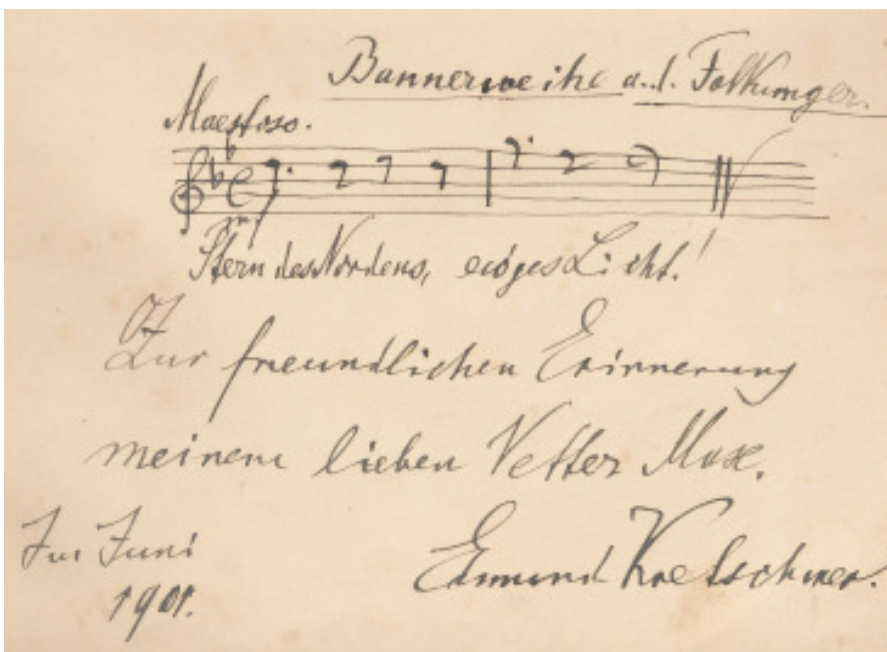 Bannerweihe a. d. Folkunger.
Maestoso.
Stern des Nordens, ew'ges Licht!
Zur freundlichen Erinnerung
meinem lieben Vetter Max.
Im Juni
1901.
Edmund Kretschmer.